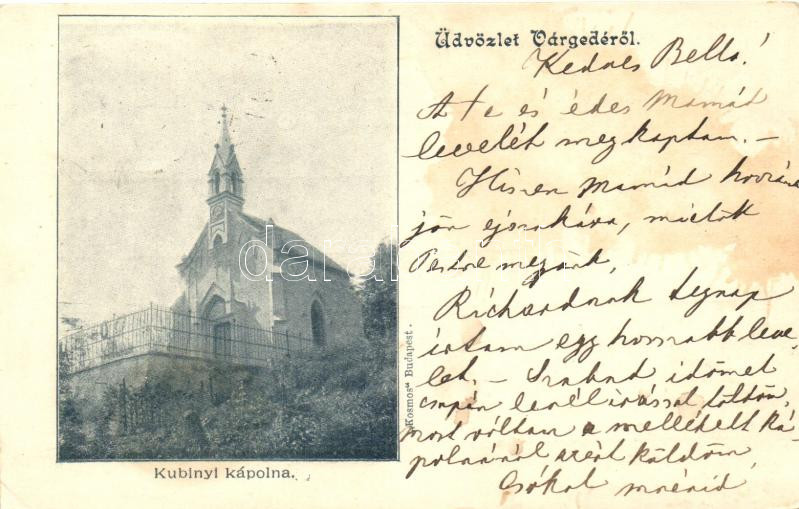 Üdvözlet Várgedéről.
Kedves Bella!
A te és édes Mamád
levelét megkaptam. –
Hiszen Mamád hozzánk
jön éjszakára, mielőtt
Pestre megyünk,
Richardnak tegnap
írtam egy hosszabb leve-
let. – Szabad időmet
csupán levél írással töltöm,
most voltam a mellékelt ká-
polnánál azért küldöm
Csókol
Kubinyi kápolna.
„Kosmos“ Budapest.
darabanth